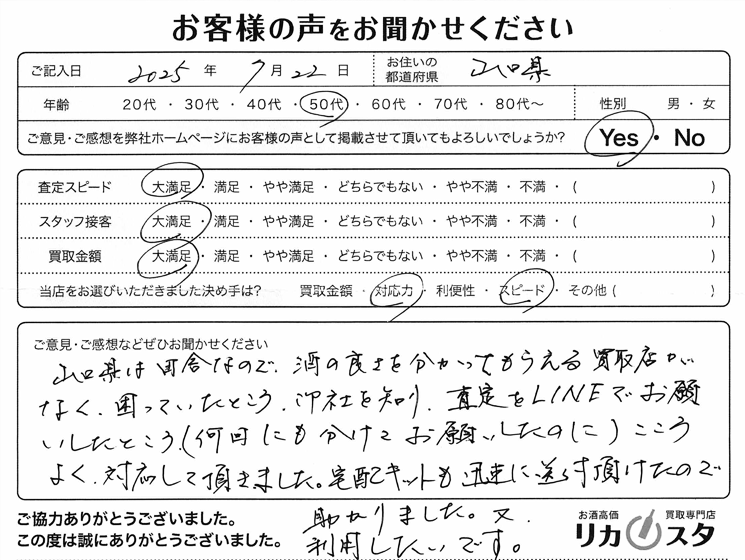 お客様の声をお聞かせください
ご記入日 2025 年 7 月 22 日 お住いの都道府県 山口県
年齢 20代 ・ 30代 ・ 40代 ・ 50代 ・ 60代 ・ 70代 ・ 80代〜 性別 男 ・ 女
ご意見・ご感想を弊社ホームページにお客様の声として掲載させて頂いてもよろしいでしょうか? Yes ・ No
査定スピード 大満足 ・ 満足 ・ やや満足 ・ どちらでもない ・ やや不満 ・ 不満 ・ ( )
スタッフ接客 大満足 ・ 満足 ・ やや満足 ・ どちらでもない ・ やや不満 ・ 不満 ・ ( )
買取金額 大満足 ・ 満足 ・ やや満足 ・ どちらでもない ・ やや不満 ・ 不満 ・ ( )
当店をお選びいただきました決め手は? 買取金額 ・ 対応力 ・ 利便性 ・ スピード ・ その他 ( )
ご意見・ご感想などぜひお聞かせください
山口県は田舎なので、酒の良さを分かってもらえる買取店が
なく、困っていたところ、御社を知り、査定をLINEでお願
いしたところ、(何回にも分けてお願いしたのに)こころ
よく、対応して頂きました。宅配キットも迅速に送付頂けたので
助かりました。又、
利用したいです。
ご協力ありがとうございました。
この度は誠にありがとうございました。
お酒高価 買取専門店
リカスタ